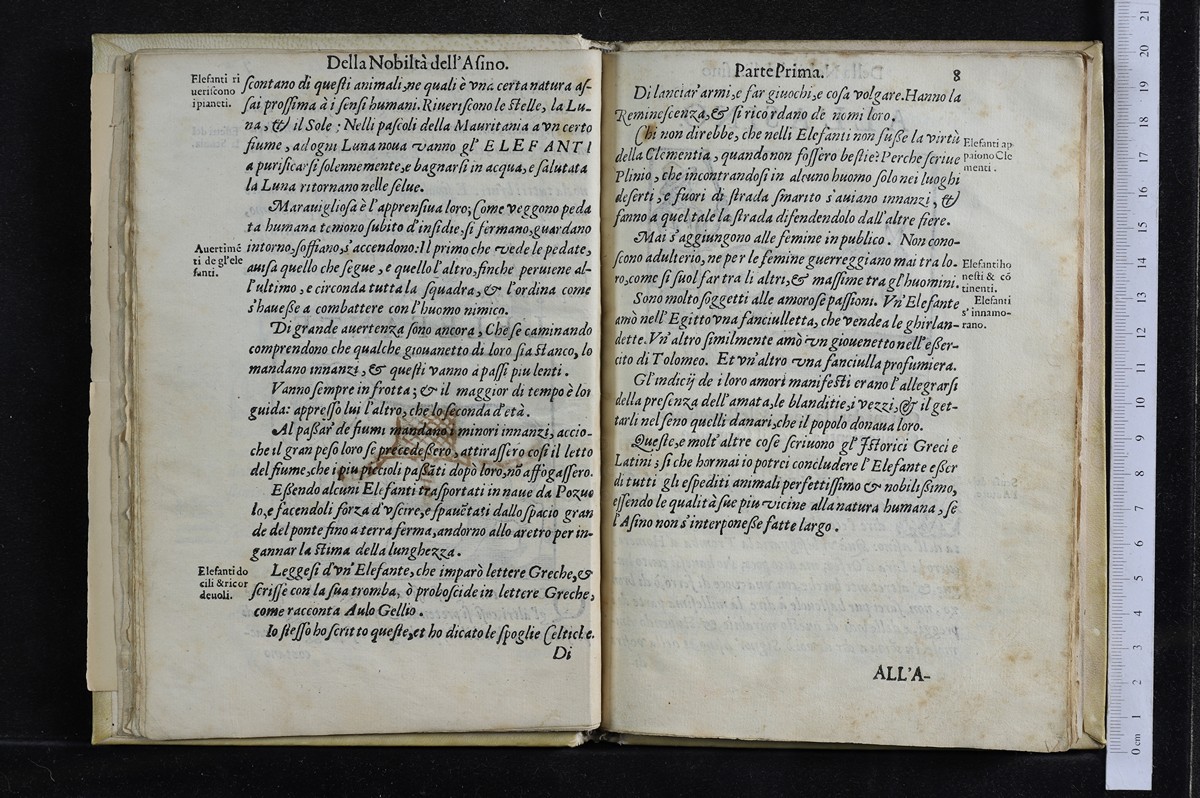 Della Nobiltà dell'Asino.
Elefanti ri
ueriscono
i pianeti.
scontano di questi animali, ne quali è vna certa natura as-
sai prossima à i sensi humani. Riueriscono le stelle, la Lu-
na, & il Sole; Nelli pascoli della Mauritania a vn certo
fiume, ad ogni Luna noua vanno gl' ELEFANTI
a purificarsi solennemente, e bagnarsi in acqua, e salutata
la Luna ritornano nelle selue.
Marauigliosa è l'apprensiua loro; Come veggono peda
ta humana temono subito d'insidie, si fermano, guardano
Auertimē
ti de gl'ele
fanti.
intorno, soffiano, s'accendono: Il primo che vede le pedate,
auisa quello che segue, e quello l'altro, finche peruiene al-
l'ultimo, e circonda tutta la squadra, & l'ordina come
s'hauesse a combattere con l'huomo nimico.
Di grande auertenza sono ancora, Che se caminando
comprendono che qualche giouanetto di loro sia stanco, lo
mandano innanzi, & questi vanno a passi piu lenti.
Vanno sempre in frotta; & il maggior di tempo è lor
guida: appresso lui l'altro, che lo seconda d'età.
Al passar de fiumi mandano i minori innanzi, accio-
che il gran peso loro se precedessero, attirassero cosi il letto
del fiume, che i piu piccioli passati dopo loro, nō affogassero.
Essendo alcuni Elefanti trasportati in naue da Pozuo
lo, e facendoli forza d'vscire, e spauētati dallo spacio gran
de del ponte fino a terra ferma, andorno allo aretro per in-
gannar la stima della lunghezza.
Elefanti do
cili & ricor
deuoli.
Leggesi d'vn' Elefante, che imparò lettere Greche, &
scrisse con la sua tromba, ò proboscide in lettere Greche,
come racconta Aulo Gellio.
Io stesso ho scritto queste, et ho dicato le spoglie Celtiche.
Di
Parte Prima.
8
Di lanciar' armi, e far giuochi, e cosa volgare. Hanno la
Reminescenza, & si ricordano de nomi loro.
Chi non direbbe, che nelli Elefanti non fusse la virtù
Elefanti ap
paiono Cle
menti.
della Clementia, quando non fossero bestie? Perche scriue
Plinio, che incontrandosi in alcuno huomo solo nei luoghi
deserti, e fuori di strada smarito s'auiano innanzi, &
fanno a quel tale la strada difendendolo dall'altre fiere.
Mai s'aggiungono alle femine in publico. Non cono-
scono adulterio, ne per le femine guerreggiano mai tra lo-
ro, come si suol far tra li altri, & massime tra gl'huomini.
Elefanti ho
nesti & cō
tinenti.
Sono molto soggetti alle amorose passioni. Vn' Elefante
Elefanti
s'innamo-
rano.
amò nell'Egitto vna fanciulletta, che vendea le ghirlan-
dette. Vn'altro similmente amò vn giouenetto nell'esser-
cito di Tolomeo. Et vn'altro vna fanciulla profumiera.
Gl'indicij de i loro amori manifesti erano l'allegrarsi
della presenza dell'amata, le blanditie, i vezzi, & il get-
tarli nel seno quelli danari, che il popolo donaua loro.
Queste, e molt'altre cose scriuono gl' Istorici Greci e
Latini; si che hormai io potrei concludere l'Elefante esser
di tutti gli espediti animali perfettissimo & nobilissimo,
essendo le qualità sue piu vicine alla natura humana, se
l'Asino non s'interponesse fatte largo.
ALL'A-
0 cm 1 2 3 4 5 6 7 8 9 10 11 12 13 14 15 16 17 18 19 20 21